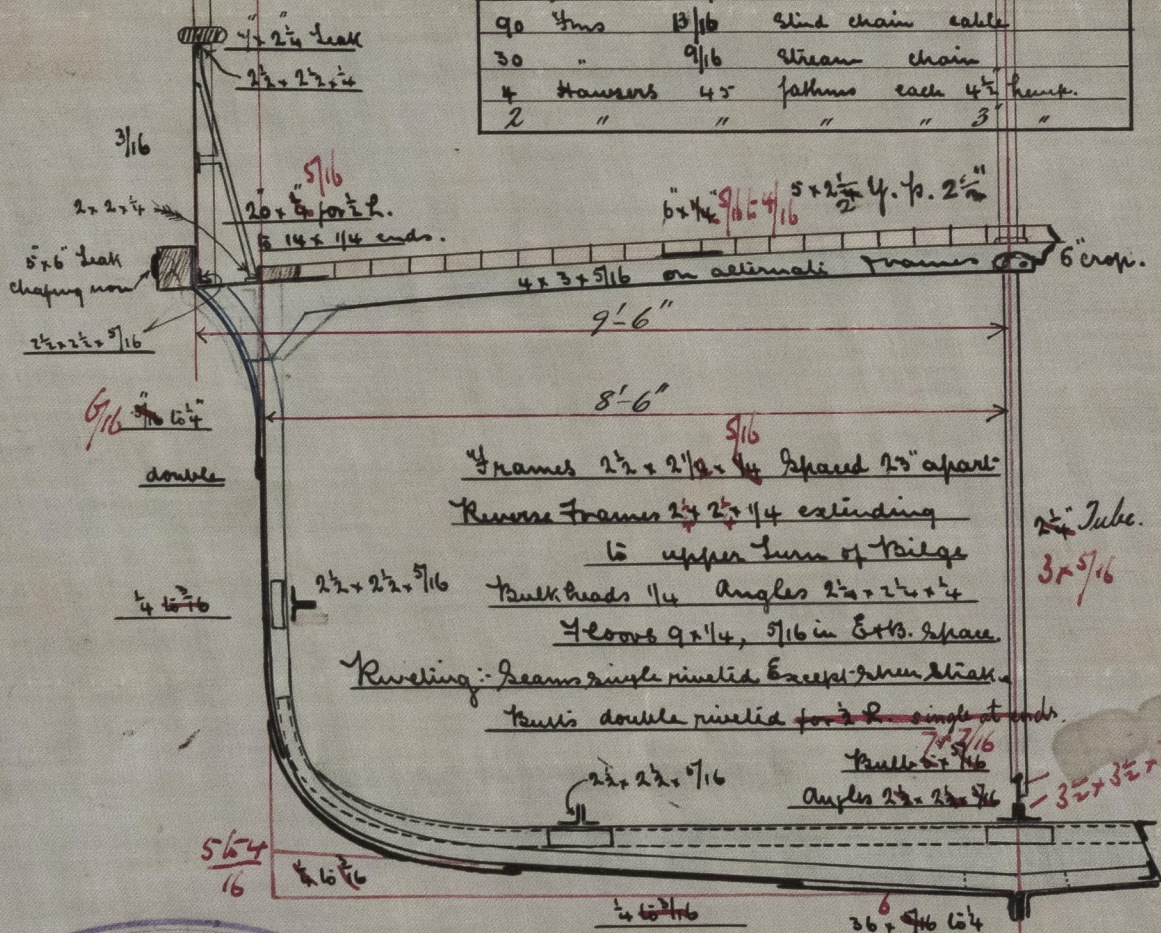 90 Fms 13/16 Stud chain cable
30 " 9/16 Stream chain
4 Hawsers 45 fathms each 4½" hemp.
2 " " " " 3" "
7" x 2¼ Teak
2½ x 2½ x ¼
3/16
5/16
2 x 2 x ¼
20" x ¼" for ½ L.
to 14 x 1/4 ends.
6" x 1/4" 5/16 to 4/16
5 x 2½ Y. p. 2½"
5" x 6" Teak
chafing iron
4 x 3 x 5/16 on alternate Frames
6" crop.
2½ x 2½ x 5/16
9'-6"
8'-6"
6/16 5/16" to ¼"
double
5/16
Frames 2½ x 2½ x ¼ Spaced 23" apart
Reverse Frames 2¼ x 2¼ x 1/4 extending
to upper turn of Bilge
Bulkheads 1/4 Angles 2¼ x 2¼ x ¼
Floors 9 x 1/4, 5/16 in E & B. Space.
Riveting:- Seams single riveted Except Sheer Strake
Butts double riveted for ½ L. single at ends.
2¼" Tube.
3 x 5/16
¼ to 3/16
2½ x 2½ x 5/16
7 x 7/16
Bulb 6 x 5/16
Angles 2½ x 2½ x 5/16
3½ x 3½ x
2½ x 2½ x 5/16
5 to 4
16
¼ to 3/16
¼ to 3/16
6
36 x 5/16 to ¼